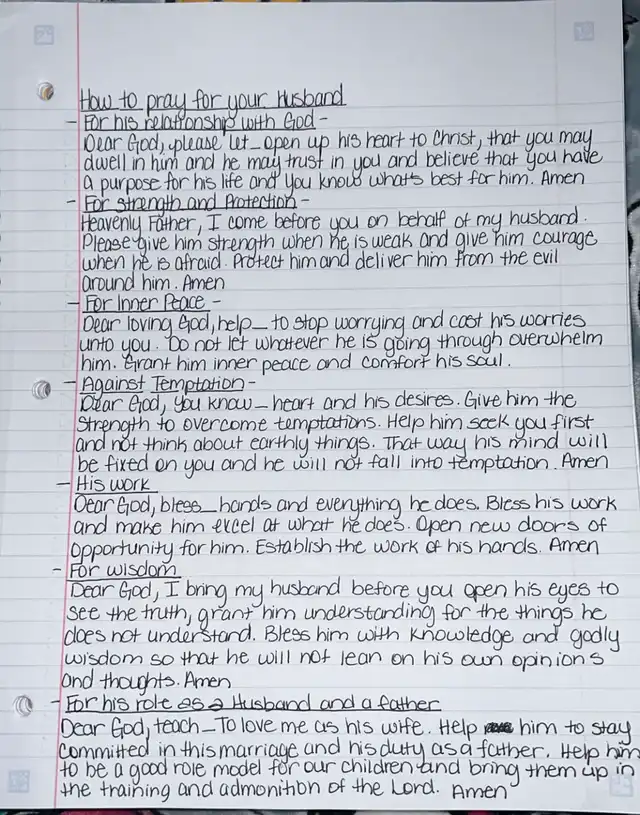 How to pray for your Husband
- For his relationship with God -
Dear God, please let _ open up his heart to Christ, that you may
dwell in him and he may trust in you and believe that you have
a purpose for his life and you know what's best for him. Amen
- For strength and Protection -
Heavenly Father, I come before you on behalf of my husband.
Please give him strength when he is weak and give him courage
when he is afraid. Protect him and deliver him from the evil
around him. Amen
- For Inner Peace -
Dear loving God, help _ to stop worrying and cast his worries
unto you. Do not let whatever he is going through overwhelm
him. Grant him inner peace and comfort his soul.
- Against Temptation -
Dear God, you know _ heart and his desires. Give him the
strength to overcome temptations. Help him seek you first
and not think about earthly things. That way his mind will
be fixed on you and he will not fall into temptation. Amen
- His work
Dear God, bless _ hands and everything he does. Bless his work
and make him excel at what he does. Open new doors of
opportunity for him. Establish the work of his hands. Amen
- For wisdom
Dear God, I bring my husband before you open his eyes to
see the truth, grant him understanding for the things he
does not understand. Bless him with knowledge and godly
wisdom so that he will not lean on his own opinions
and thoughts. Amen
- For his role as a Husband and a father
Dear God, teach _ To love me as his wife. Help him to stay
committed in this marriage and his duty as a father. Help him
to be a good role model for our children and bring them up in
the training and admonition of the Lord. Amen